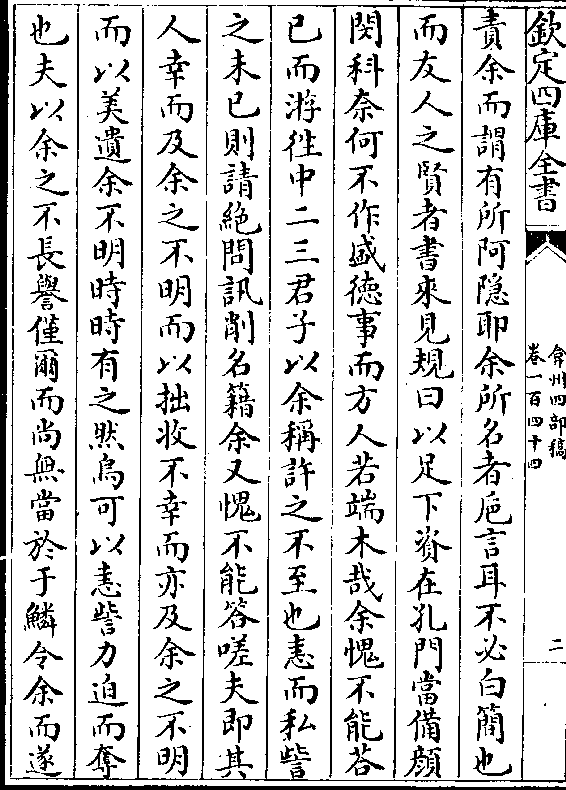 欽定四庫全書
弇州四部稿
卷一百四十四
二
責余而謂有所阿隱耶余所名者巵言耳不必白簡也
而友人之賢者書來見規曰以足下資在孔門當備顔
閔科奈何不作盛徳事而方人若端木哉余愧不能答
已而游徃中二三君子以余稱許之不至也恚而私訾
之未已則請絶問訊削名籍余又愧不能答嗟夫即其
人幸而及余之不明而以拙收不幸而亦及余之不明
而以美遺余不明時時有之然烏可以恚訾力迫而奪
也夫以余之不長譽僅爾而尚無當於于鱗令余而遂